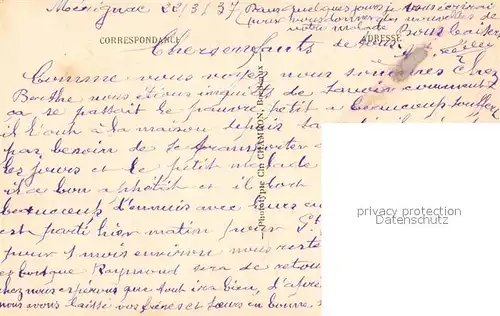 Mérignac 22/3/37 Dans quelques jours je vous écrirai
pour vous donner des nouvelles de
votre malade Bons baisers
CORRESPONDANCE ADRESSE
Chers enfants de tous
Comme vous voyez nous sommes chez
Berthe nous étions inquiets de savoir comment
ça se passait le pauvre petit a beaucoup souffert
il l'ont à la maison depuis
pas besoin de le transporter
les jours et le petit malade
il a bon appétit et il dort
beaucoup d'ennuis avec leurs
est parti hier matin pour
pour 1 mois environ nous
et lorsque Raymond sera de retour
chez nous espérons que tout ira bien, d'après
nous avons laissé vos frères et sœurs en bonne
Phototypie Cin CHAMBON, Bordeaux
privacy protection
www.delcampe.net